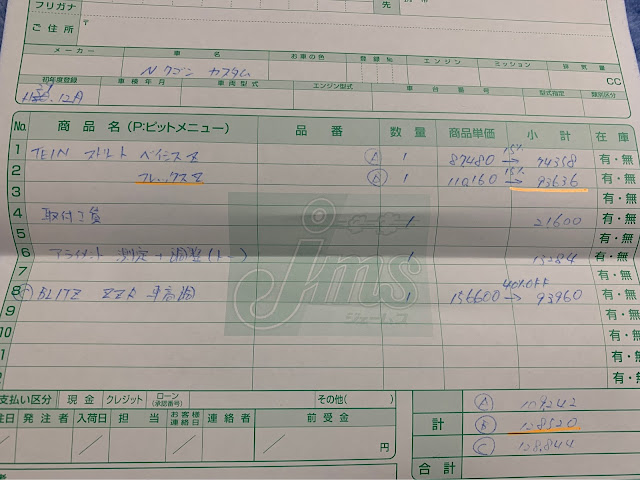 フリガナ
先
ご住所 〒
メーカー 車名 お車の色 登録No. エンジン ミッション 排気量
Nワゴン カスタム CC
初年度登録 車検年月 車両型式 エンジン型式 車台番号 型式指定 類別区分
12月
No. 商品名(P:ピットメニュー) 品番 数量 商品単価 小計 在庫
1 TEIN ストリート ベイシスZ Ⓐ 1 87480 15%→ 74358 有・無
2 フレックスZ Ⓑ 1 110160 15%→ 93636 有・無
3 有・無
4 取付工賃 1 21600 有・無
5 有・無
6 アライメント 測定+調整(トー) 1 13284 有・無
7 有・無
8 BLITZ ZZR 車高調 1 156600 40%OFF→ 93960 有・無
9 有・無
10 有・無
有・無
有・無
jms
ジェームス
支払い区分 現金 クレジット ローン(承認番号) その他( )
注日 発注者 入荷日 担当 お客様連絡日 連絡者 前受金
円
計
Ⓐ 109242
Ⓑ 128520
Ⓒ 128,844
合計